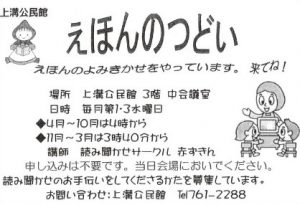 上溝公民館
えほんのつどい
えほんのよみきかせをやっています。 来てね!
場所 上溝公民館 3階 中会議室
日時 毎月第1・3水曜日
◆4月~10月は4時から
◆11月~3月は3時40分から
講師 読み聞かせサークル 赤ずきん
申し込みは不要です。当日会場においでください。
読み聞かせのお手伝いをしてくださるかたを募集しています。
お問い合わせ:上溝公民館 Tel761-2288